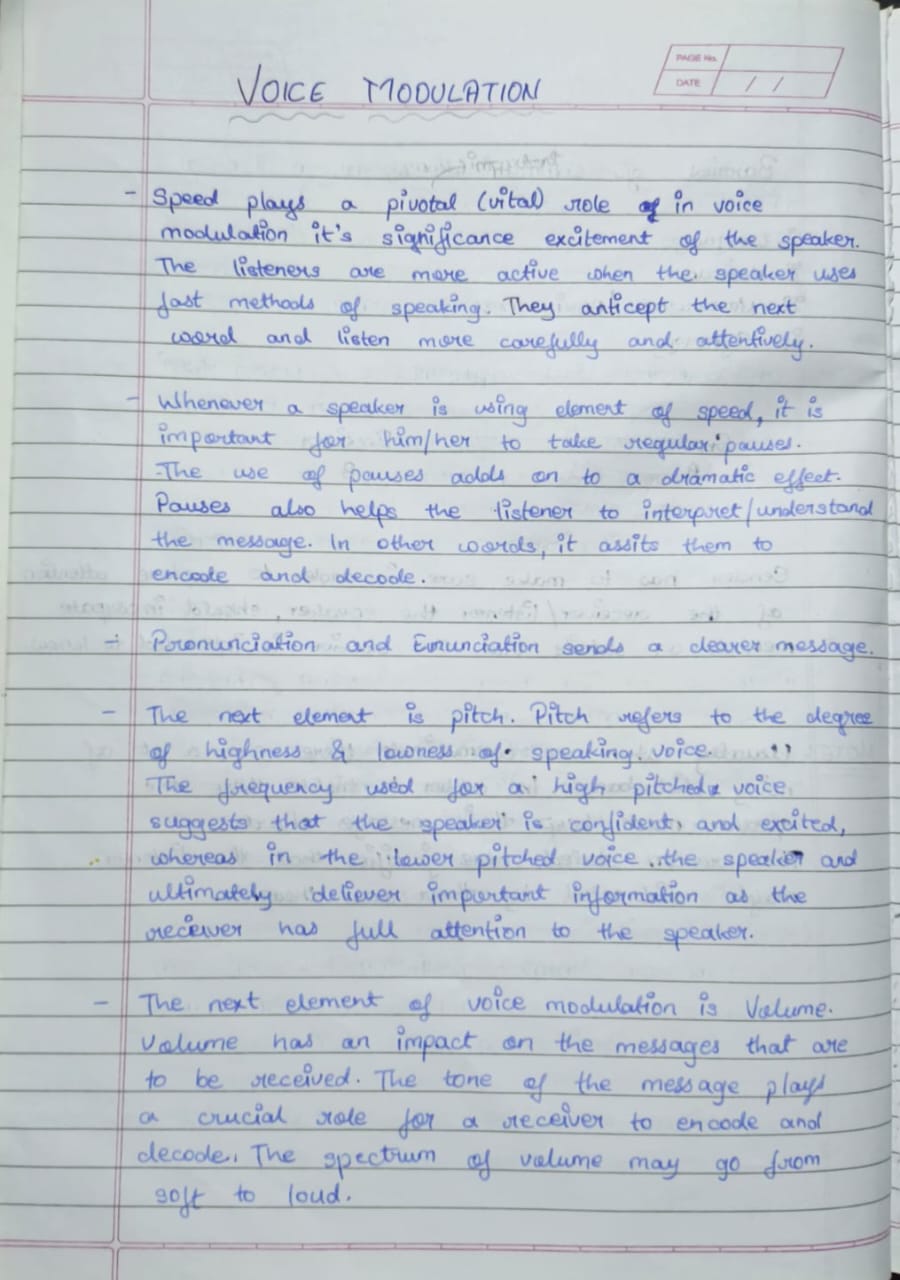 PAGE No.
DATE / /
VOICE MODULATION
- Speed plays a pivotal (vital) role of in voice
modulation it's significance excitement of the speaker.
The listeners are more active when the speaker uses
fast methods of speaking. They anticept the next
word and listen more carefully and attentively.
- Whenever a speaker is using element of speed, it is
important for him/her to take regular pauses.
The use of pauses adds on to a dramatic effect.
Pauses also helps the listener to interpret/understand
the message. In other words, it assits them to
encode and decode.
- Pronunciation and Enunciation sends a clearer message.
- The next element is pitch. Pitch refers to the degree
of highness & lowness of speaking voice.
The frequency used for a high pitched voice
suggests that the speaker is confident, and excited,
whereas in the lower pitched voice the speaker and
ultimately deliever important information as the
receiver has full attention to the speaker.
- The next element of voice modulation is Volume.
Volume has an impact on the messages that are
to be received. The tone of the message plays
a crucial role for a receiver to encode and
decode. The spectrum of volume may go from
soft to loud.